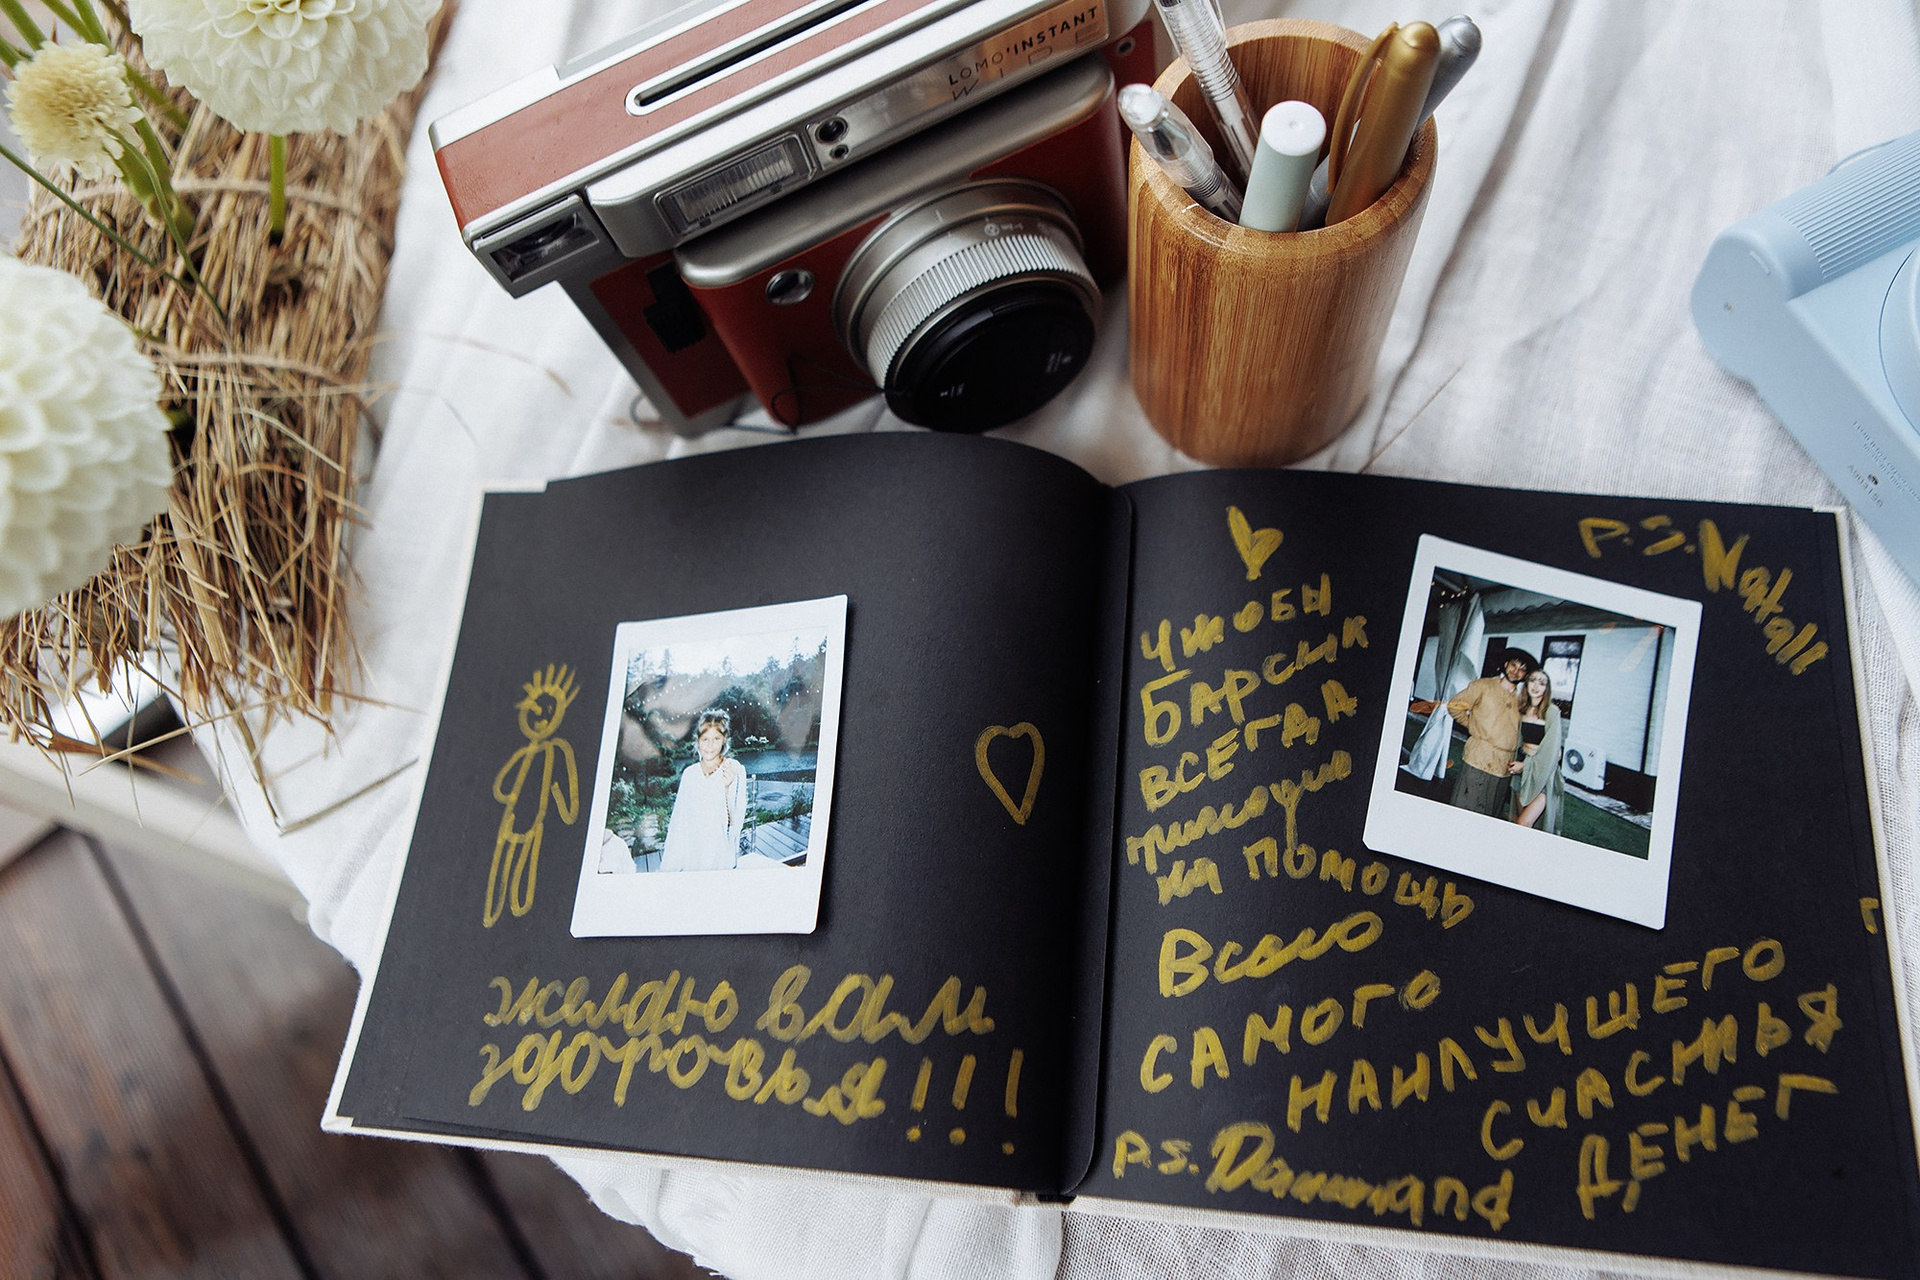 LOMO'INSTANT
WIDE
желаю вам
здоровья!!!
Чтобы
Барсик
ВСЕГДА
приходил
на помощь
Всего
САМОГО
НАИЛУЧШЕГО
СЧАСТЬЯ
ДЕНЕГ
P.S.
P.S. Natali